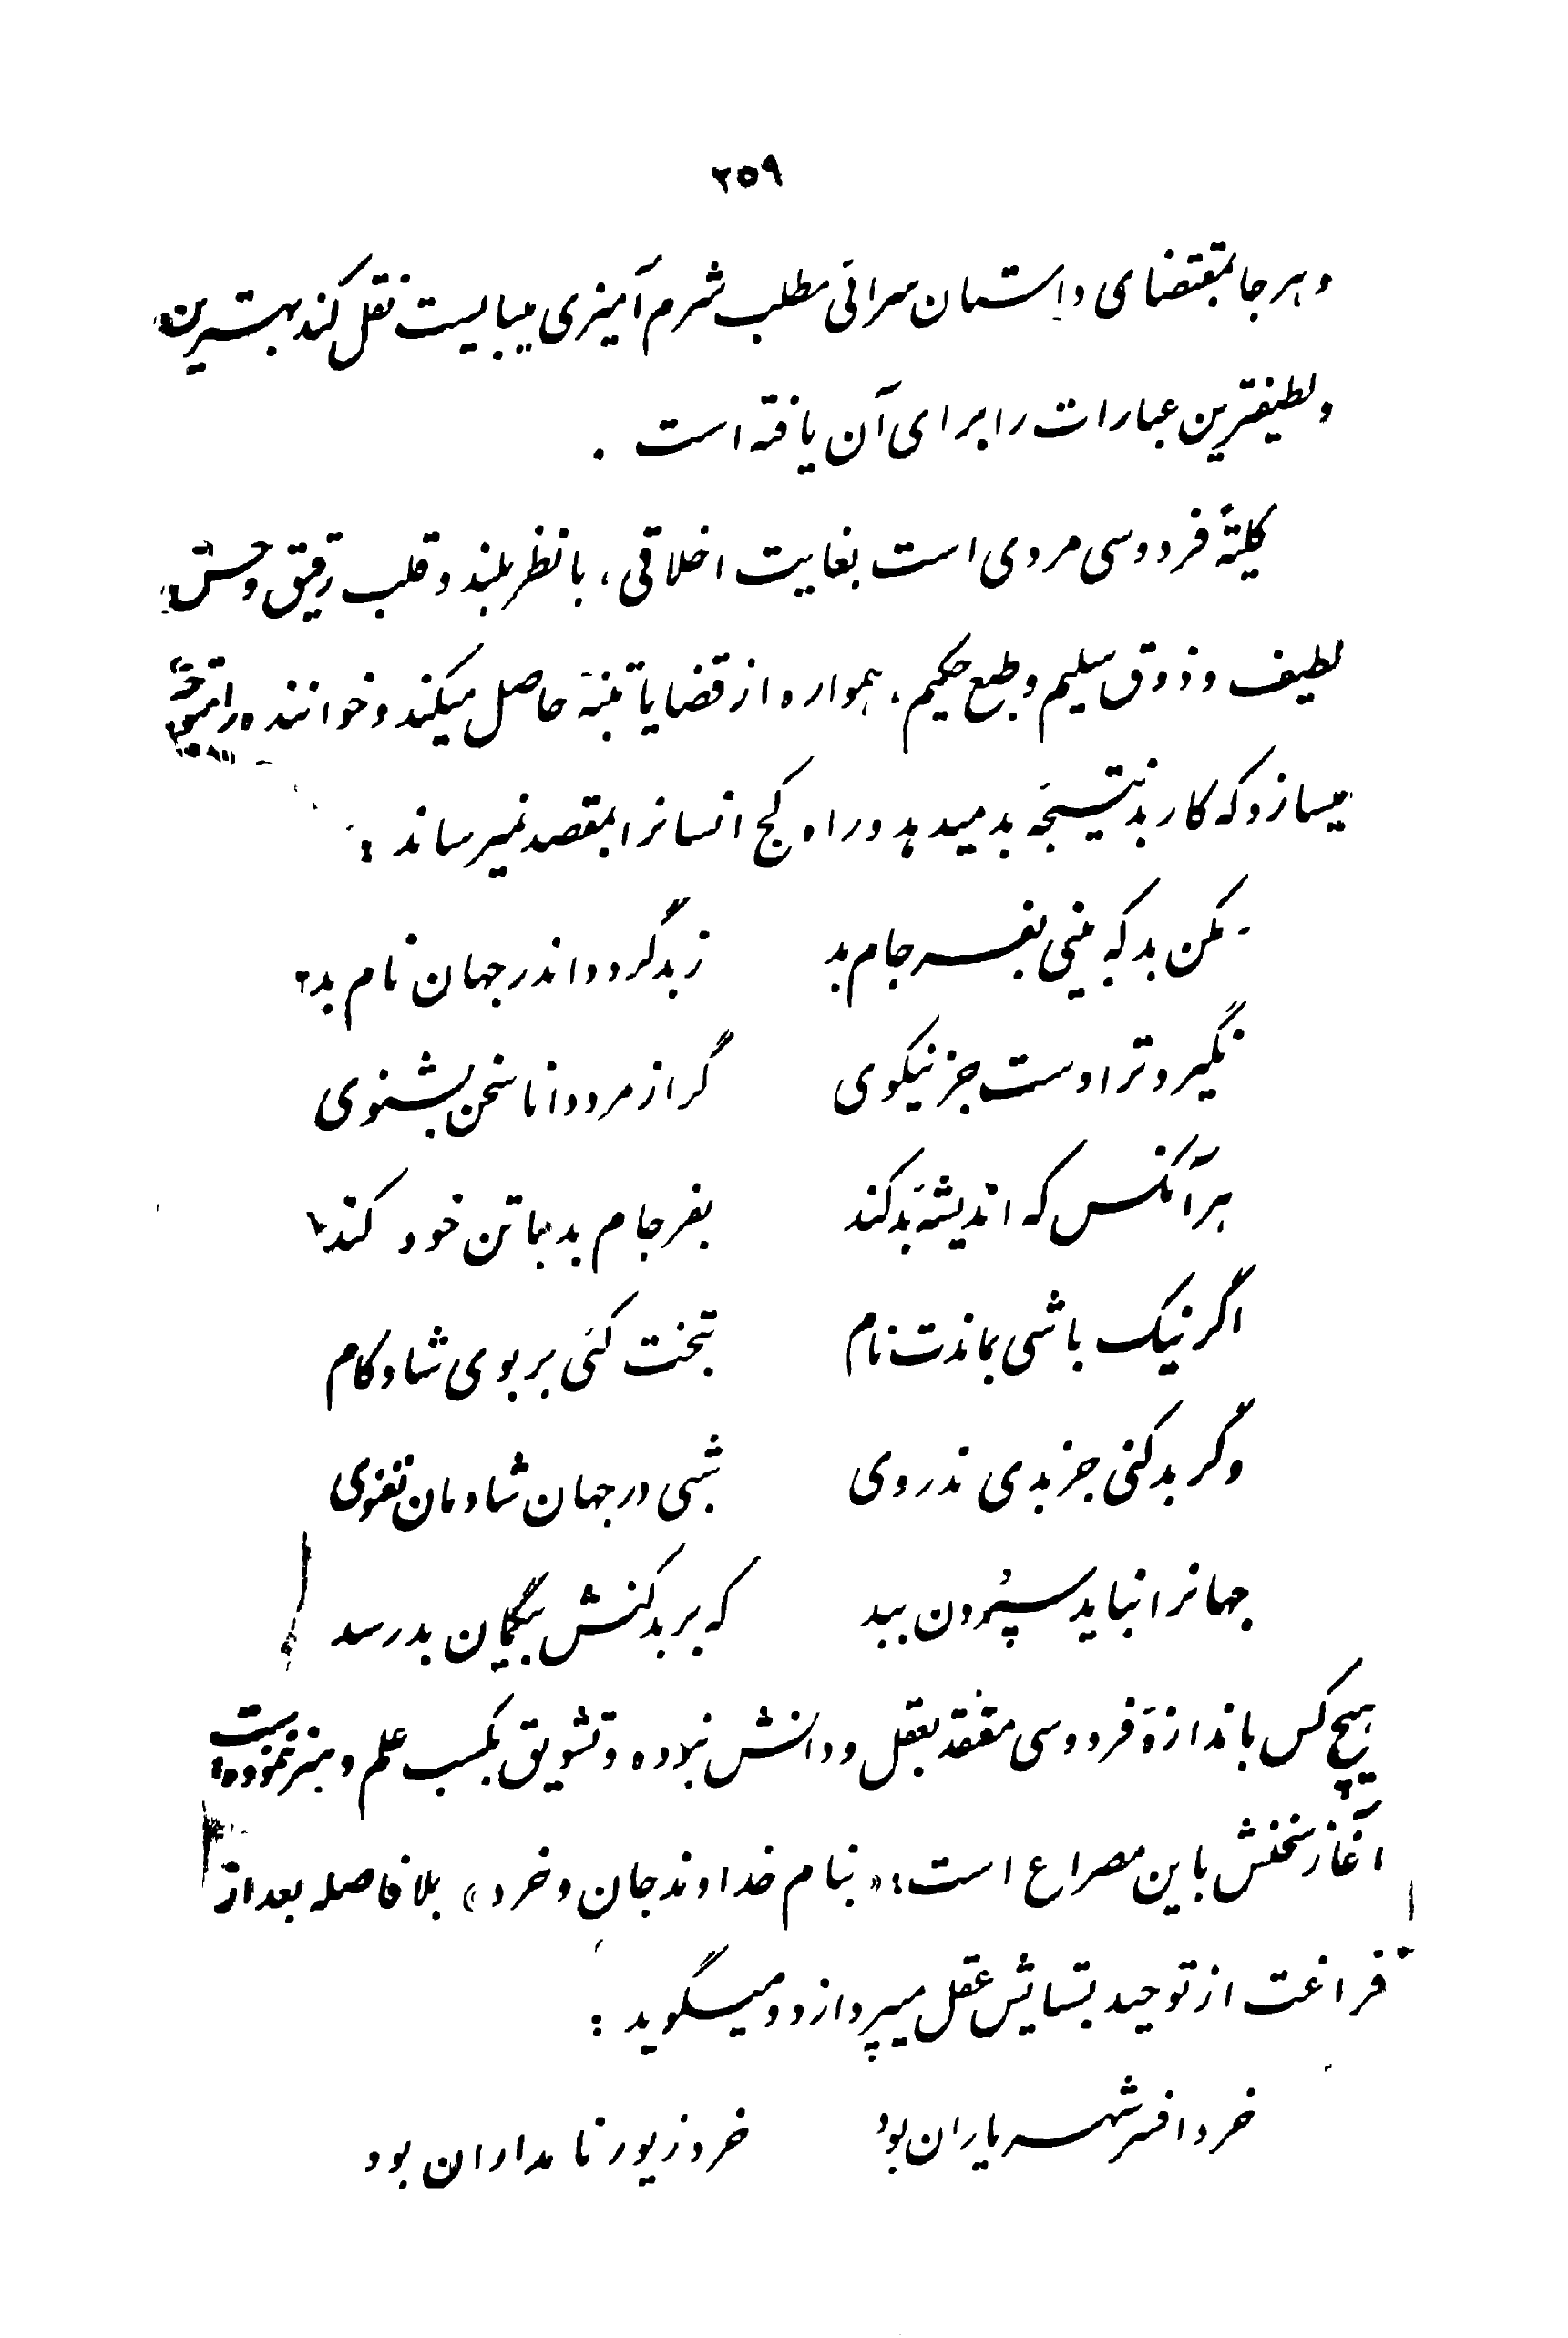 ۲۵۹
و هر جا بمقتضای داستان سرائی مطلب شرم آمیزی میبایست نقل کند بهترین
و لطیفترین عبارات را برای آن یافته است .
کلیةً فردوسی مردی است بغایت اخلاقی، با نظر بلند و قلب رقیق و حس
لطیف و ذوق سلیم و طبع حکیم، همواره از قضایا تنبّه حاصل میکند و خواننده را متوجّه
میسازد که کار بد نتیجهٔ بد میدهد و راه کج انسانرا بمقصد نمیرساند :
مکن بد که بینی بفرجام بد    ز بد گردد اندر جهان نام بد
نگیرد ترا دست جز نیکوی    گر از مرد دانا سخن بشنوی
هر آنکس که اندیشهٔ بد کند    بفرجام بد با تن خود کند
اگر نیک باشی بماندت نام    بتخت کئی بر بوی شادکام
وگر بد کنی جز بدی ندروی    شبی در جهان شادمان نغنوی
جهانرا نباید سپُردن ببد    که بر بدکنش بیگمان بد رسد
هیچ کس باندازهٔ فردوسی معتقد بعقل و دانش نبوده و تشویق بکسب علم و هنر ننموده است
آغاز سخنش باین مصراع است: « بنام خداوند جان و خرد » بلا فاصله بعد از
فراغت از توحید بستایش عقل میپردازد و میگوید :
خرد افسر شهریاران بود    خرد زیور نامداران بود